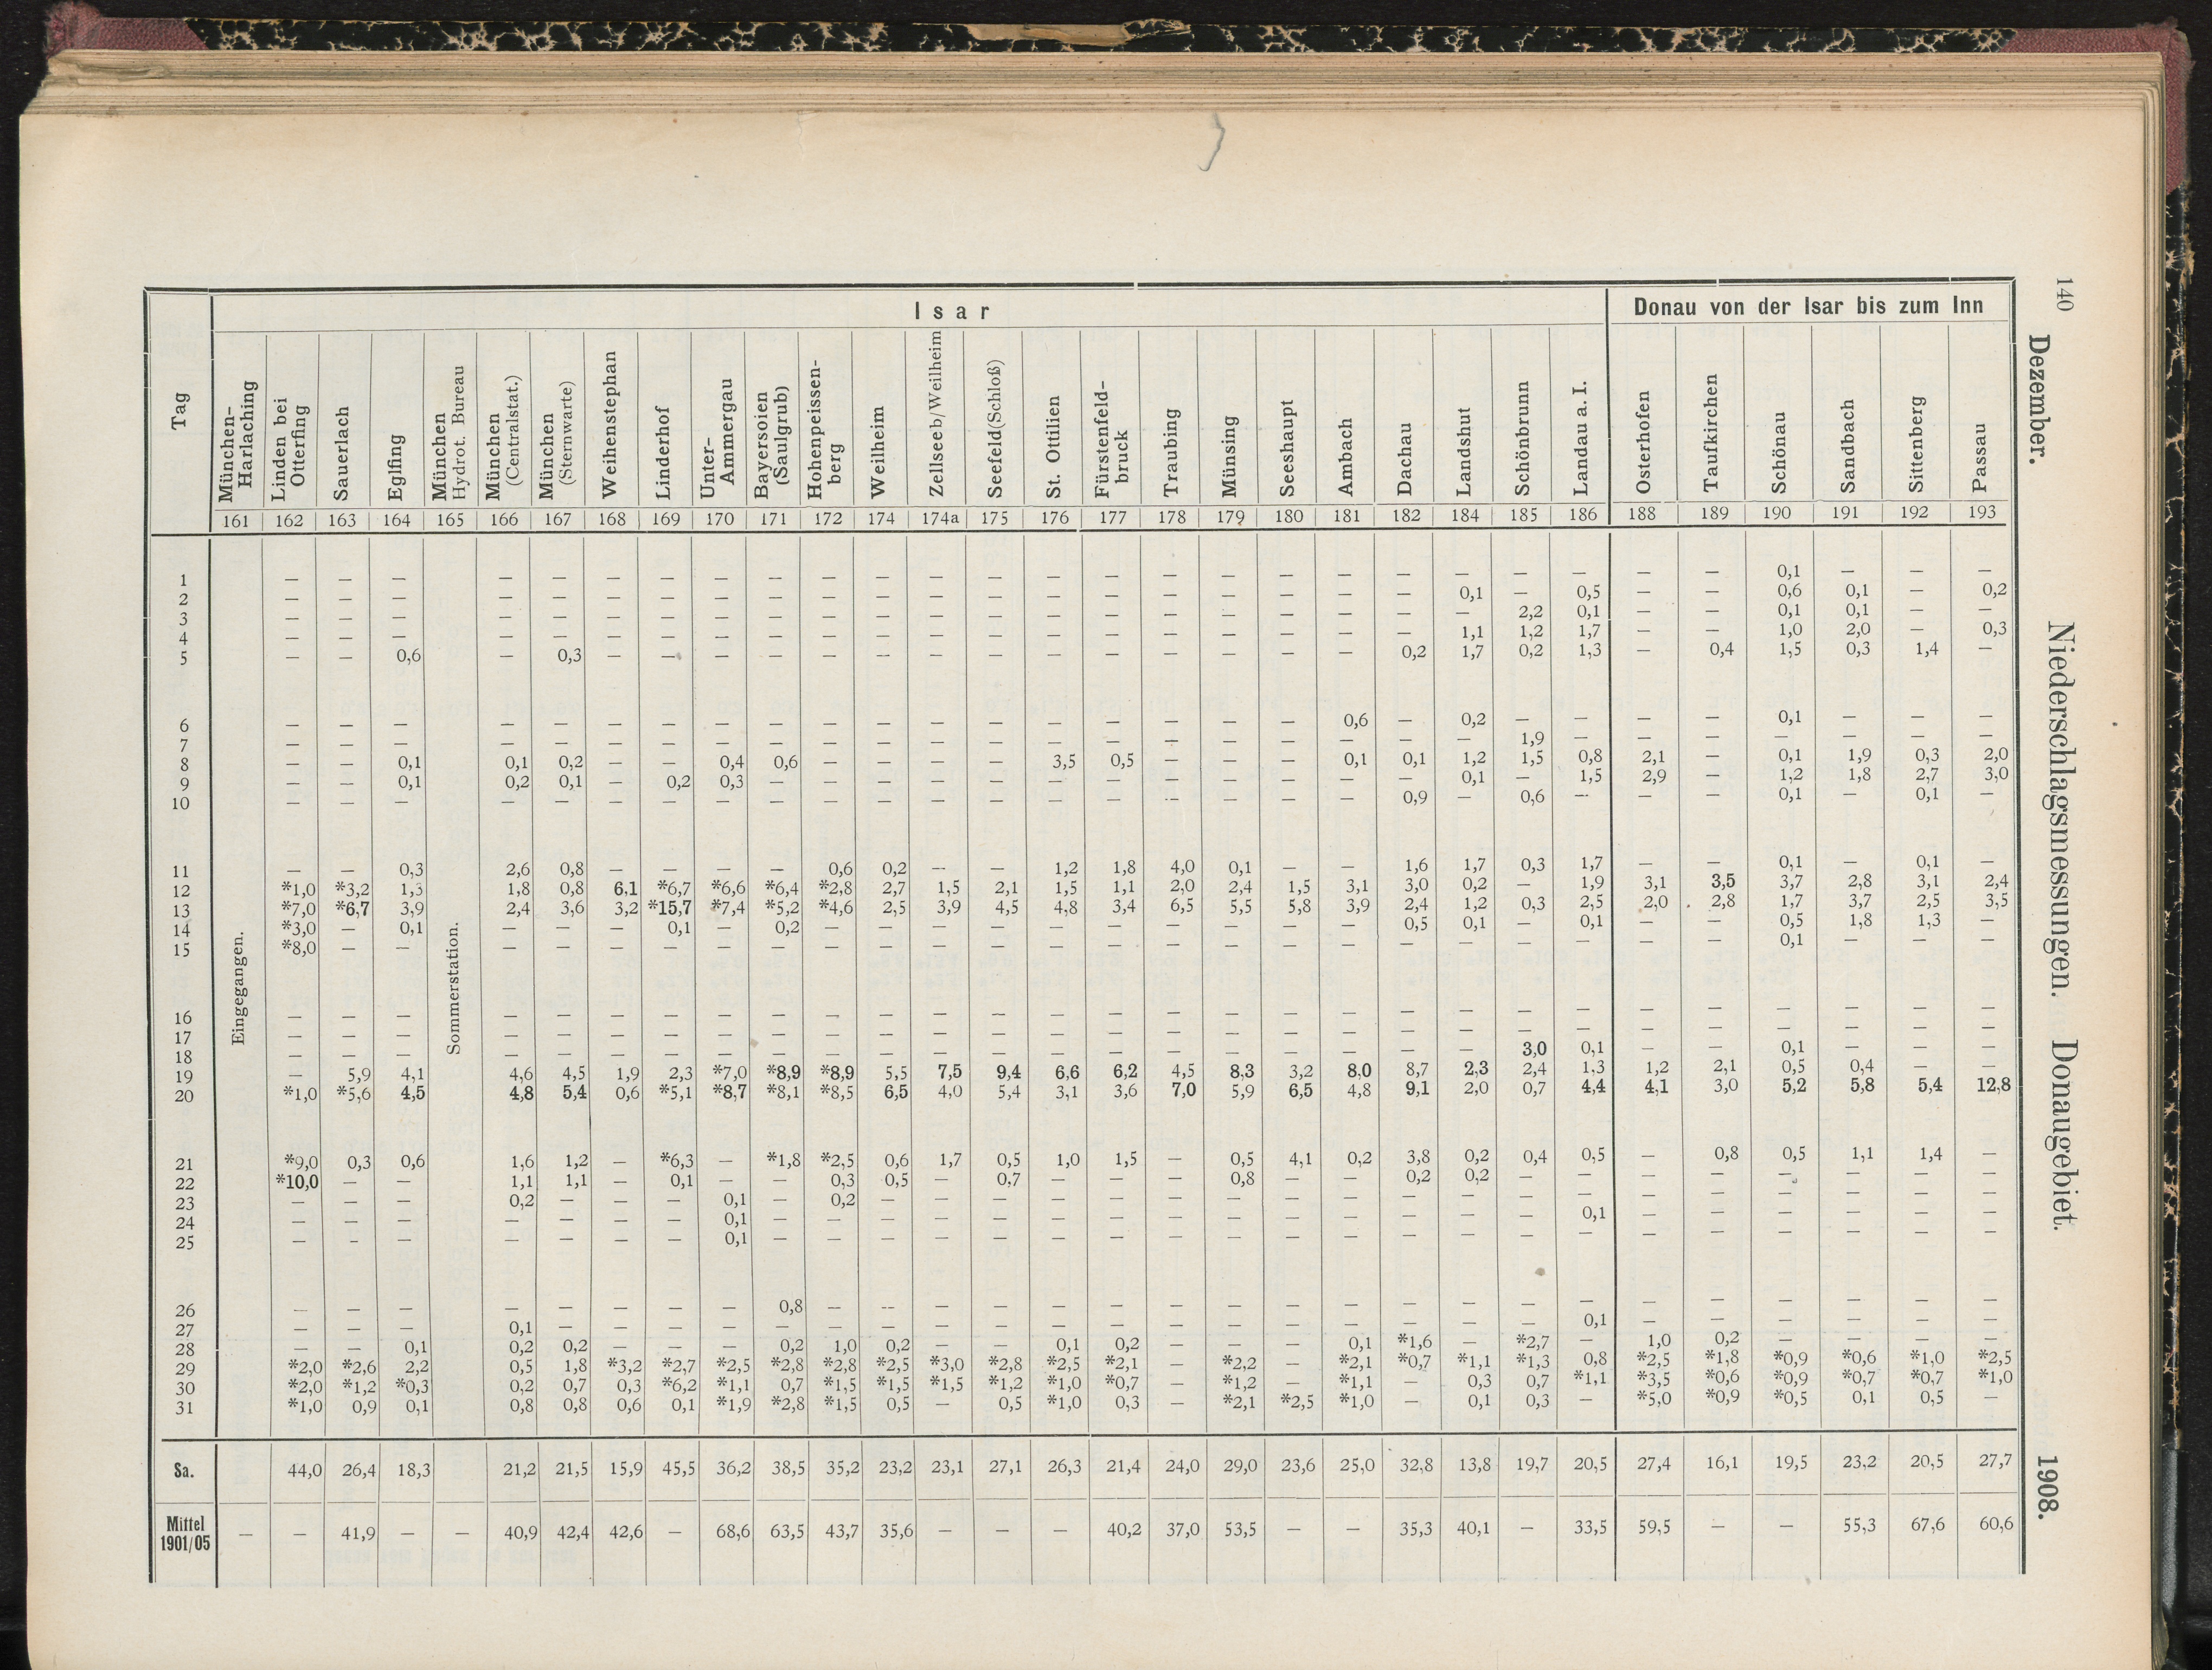 140
Dezember. Niederschlagsmessungen. Donaugebiet. 1908.
Tag | Isar | Donau von der Isar bis zum Inn
München-Harlaching | Linden bei Otterfing | Sauerlach | Eglfing | München Hydrot. Bureau | München (Centralstat.) | München (Sternwarte) | Weihenstephan | Linderhof | Unter-Ammergau | Bayersoien (Saulgrub) | Hohenpeissen-berg | Weilheim | Zellseeb/Weilheim | Seefeld (Schloß) | St. Ottilien | Fürstenfeld-bruck | Traubing | Münsing | Seeshaupt | Ambach | Dachau | Landshut | Schönbrunn | Landau a. I. | Osterhofen | Taufkirchen | Schönau | Sandbach | Sittenberg | Passau
161 | 162 | 163 | 164 | 165 | 166 | 167 | 168 | 169 | 170 | 171 | 172 | 174 | 174a | 175 | 176 | 177 | 178 | 179 | 180 | 181 | 182 | 184 | 185 | 186 | 188 | 189 | 190 | 191 | 192 | 193
Eingegangen.
Sommerstation.
1 — — — — — — — — — — — — — — — — — — — — — — — — — 0,1 — — —
2 — — — — — — — — — — — — — — — — — — — — 0,1 — 0,5 — — 0,6 0,1 — 0,2
3 — — — — — — — — — — — — — — — — — — — — — 2,2 0,1 — — 0,1 0,1 — —
4 — — — — — — — — — — — — — — — — — — — — 1,1 1,2 1,7 — — 1,0 2,0 — 0,3
5 — — 0,6 — 0,3 — — — — — — — — — — — — — — 0,2 1,7 0,2 1,3 — 0,4 1,5 0,3 1,4 —
6 — — — — — — — — — — — — — — — — — — 0,6 — 0,2 — — — — 0,1 — — —
7 — — — — — — — — — — — — — — — — — — — — — 1,9 — — — — — — —
8 — — 0,1 0,1 0,2 — — 0,4 0,6 — — — — 3,5 0,5 — — — 0,1 0,1 1,2 1,5 0,8 2,1 — 0,1 1,9 0,3 2,0
9 — — 0,1 0,2 0,1 — 0,2 0,3 — — — — — — — — — — — — 0,1 — 1,5 2,9 — 1,2 1,8 2,7 3,0
10 — — — — — — — — — — — — — — — — — — — 0,9 — 0,6 — — — 0,1 — 0,1 —
11 — — 0,3 2,6 0,8 — — — — 0,6 0,2 — — 1,2 1,8 4,0 0,1 — — 1,6 1,7 0,3 1,7 — — 0,1 — 0,1 —
12 *1,0 *3,2 1,3 1,8 0,8 6,1 *6,7 *6,6 *6,4 *2,8 2,7 1,5 2,1 1,5 1,1 2,0 2,4 1,5 3,1 3,0 0,2 — 1,9 3,1 3,5 3,7 2,8 3,1 2,4
13 *7,0 *6,7 3,9 2,4 3,6 3,2 *15,7 *7,4 *5,2 *4,6 2,5 3,9 4,5 4,8 3,4 6,5 5,5 5,8 3,9 2,4 1,2 0,3 2,5 2,0 2,8 1,7 3,7 2,5 3,5
14 *3,0 — 0,1 — — — 0,1 — 0,2 — — — — — — — — — — 0,5 0,1 — 0,1 — — 0,5 1,8 1,3 —
15 *8,0 — — — — — — — — — — — — — — — — — — — — — — — — 0,1 — — —
16 — — — — — — — — — — — — — — — — — — — — — — — — — — — — —
17 — — — — — — — — — — — — — — — — — — — — — — — — — — — — —
18 — — — — — — — — — — — — — — — — — — — — — 3,0 0,1 — — 0,1 — — —
19 — 5,9 4,1 4,6 4,5 1,9 2,3 *7,0 *8,9 *8,9 5,5 7,5 9,4 6,6 6,2 4,5 8,3 3,2 8,0 8,7 2,3 2,4 1,3 1,2 2,1 0,5 0,4 — —
20 *1,0 *5,6 4,5 4,8 5,4 0,6 *5,1 *8,7 *8,1 *8,5 6,5 4,0 5,4 3,1 3,6 7,0 5,9 6,5 4,8 9,1 2,0 0,7 4,4 4,1 3,0 5,2 5,8 5,4 12,8
21 *9,0 0,3 0,6 1,6 1,2 — *6,3 — *1,8 *2,5 0,6 1,7 0,5 1,0 1,5 — 0,5 4,1 0,2 3,8 0,2 0,4 0,5 — 0,8 0,5 1,1 1,4 —
22 *10,0 — — 1,1 1,1 — 0,1 — — 0,3 0,5 — 0,7 — — — 0,8 — — 0,2 0,2 — — — — — — — —
23 — — — 0,2 — — — 0,1 — 0,2 — — — — — — — — — — — — — — — — — — —
24 — — — — — — — 0,1 — — — — — — — — — — — — — — 0,1 — — — — — —
25 — — — — — — — 0,1 — — — — — — — — — — — — — — — — — — — — —
26 — — — — — — — — 0,8 — — — — — — — — — — — — — — — — — — — —
27 — — — 0,1 — — — — — — — — — — — — — — — — — — 0,1 — — — — — —
28 — — 0,1 0,2 0,2 — — — 0,2 1,0 0,2 — — 0,1 0,2 — — — 0,1 *1,6 — *2,7 — 1,0 0,2 — — — —
29 *2,0 *2,6 2,2 0,5 1,8 *3,2 *2,7 *2,5 *2,8 *2,8 *2,5 *3,0 *2,8 *2,5 *2,1 — *2,2 — *2,1 *0,7 *1,1 *1,3 0,8 *2,5 *1,8 *0,9 *0,6 *1,0 *2,5
30 *2,0 *1,2 *0,3 0,2 0,7 0,3 *6,2 *1,1 0,7 *1,5 *1,5 *1,5 *1,2 *1,0 *0,7 — *1,2 — *1,1 — 0,3 0,7 *1,1 *3,5 *0,6 *0,9 *0,7 *0,7 *1,0
31 *1,0 0,9 0,1 0,8 0,8 0,6 0,1 *1,9 *2,8 *1,5 0,5 — 0,5 *1,0 0,3 — *2,1 *2,5 *1,0 — 0,1 0,3 — *5,0 *0,9 *0,5 0,1 0,5 —
Sa. 44,0 26,4 18,3 21,2 21,5 15,9 45,5 36,2 38,5 35,2 23,2 23,1 27,1 26,3 21,4 24,0 29,0 23,6 25,0 32,8 13,8 19,7 20,5 27,4 16,1 19,5 23,2 20,5 27,7
Mittel 1901/05 — — 41,9 — — 40,9 42,4 42,6 — 68,6 63,5 43,7 35,6 — — — 40,2 37,0 53,5 — — 35,3 40,1 — 33,5 59,5 — — 55,3 67,6 60,6